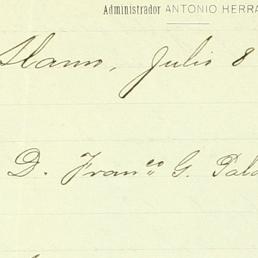 Administrador ANTONIO HERRA
Alamo, Julio 8
D. Fran.co G. Pala